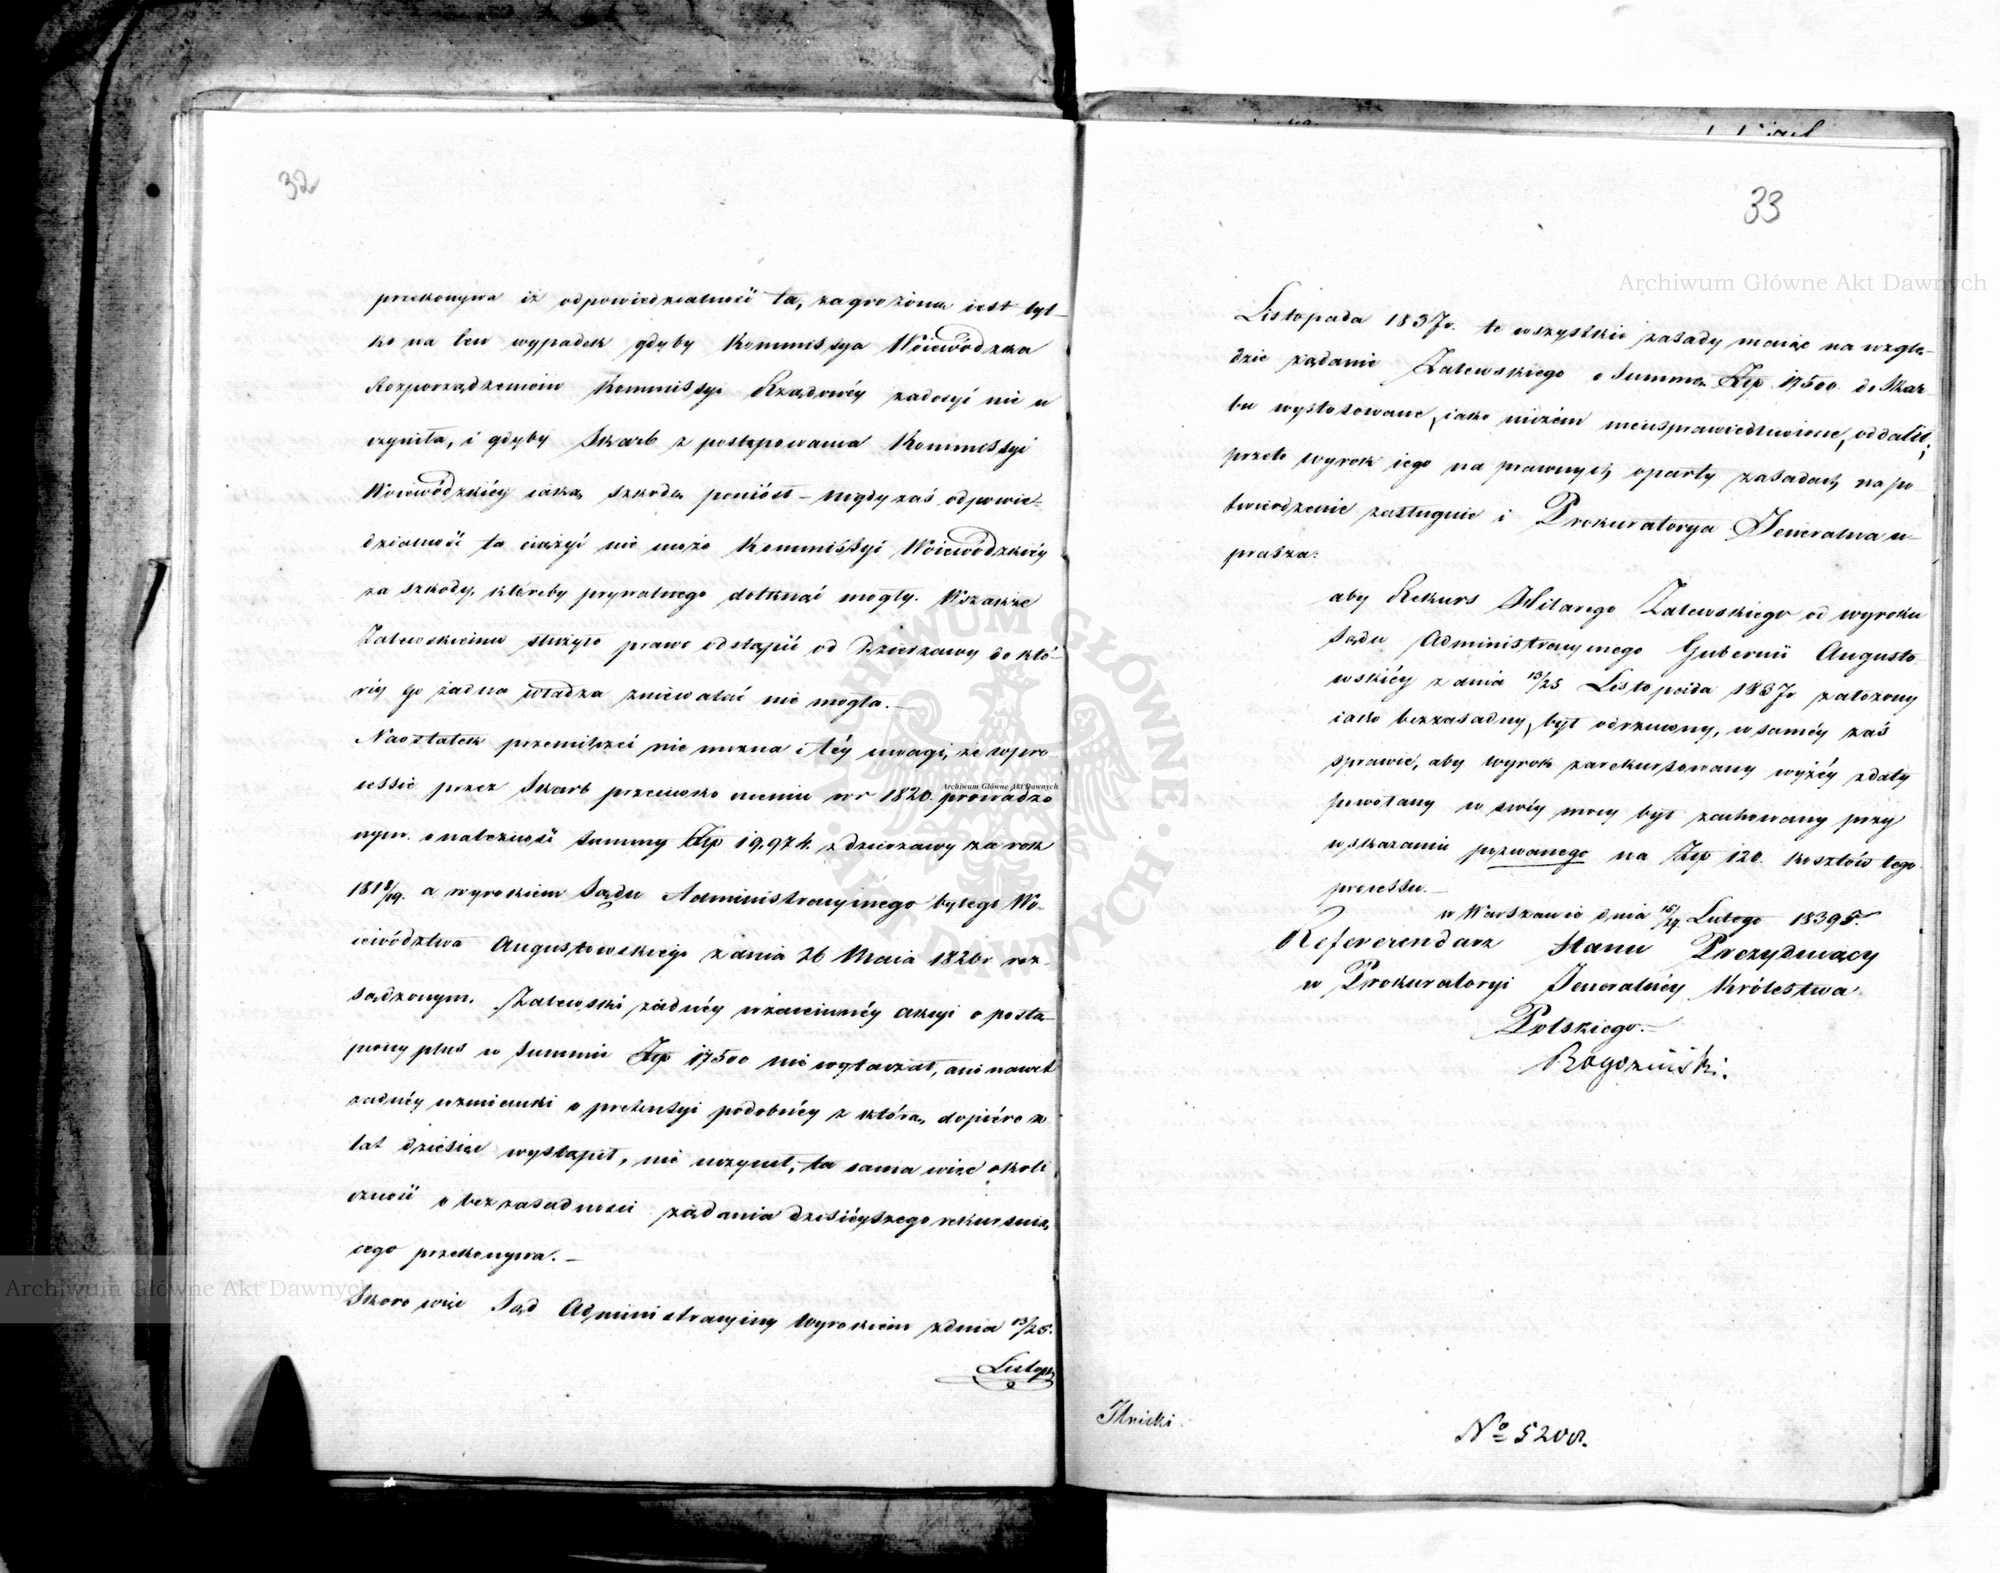 32
przekonywa iż odpowiedzialność ta, zagrożona iest tyl-
ko na ten wypadek gdyby Kommissya Woiewódzka
Rozporządzeniom Kommissyi Rządowéy zadosyć nie u
czyniła, i gdyby Skarb z postępowania Kommissyi
Woiewódzkiéy iaką szkodę poniósł – nigdy zaś odpowie-
dzialność ta ciążyć nie może Kommissyi Woiewódzkiéy
za szkody, któreby prywatnego dotknąć mogły. Wszakże
Zalewskiemu służyło prawo odstąpić od Dzierzawy do któ-
réy go żadna władza zniewalać nie mogła. –
Naostatek przemilczéć nie można i téy uwagi, że w pro-
cessie przez Skarb przeciwko niemu w r 1820. prowadzo
nym o należność summy Złp 19,974. z dzierzawy za rok
1818/19. a wyrokiem Sądu Administracyinego byłego Wo-
iewództwa Augustowskiego z dnia 26 Maia 1820r roz-
sądzonym, Zalewski żadnéy wzaiemnéy akcyi o postą-
piony plus w summie Złp 17500 nie wytaczał, ani nawet
żadnéy wzmianki o pretensyi podobnéy z którą dopiéro w
lat dziesięć wystąpił, nie uczynił, ta sama więc okoli
czność o bezzasadności żądania dzisiéyszego rekursuią
cego przekonywa. –
Skoro więc Sąd Administracyiny Wyrokiem z dnia 13/25.
Listop
33
Listopada 1837r. te wszystkie zasady maiąc na wzglę-
dzie żądanie Zalewskiego o Summę Złp 17500 do Skar-
bu wystosowane, iako niczém nieusprawiedliwione, oddalił;
przeto wyrok iego na prawnych oparty zasadach na po-
twierdzenie zasługuie i Prokuratorya Jeneralna u-
prasza:
aby Rekurs Hilarego Zalewskiego od wyroku
Sądu Administracyinego Gubernii Augusto-
wskiéy z dnia 13/25 Listopada 1837r założony
iako bezzasadny, był odrzucony, w saméy zaś
sprawie, aby wyrok zarekursowany wyżéy z daty
powołany w swéy mocy był zachowany przy
wskazaniu pozwanego na Złp 120. kosztów tego
processu. –
w Warszawie dnia Lutego 1839 r.
Referendarz Stanu Prezyduiący
w Prokuratoryi Jeneralnéy Królestwa
Polskiego. –
Rogoziński.
Nº 5200.
Archiwum Główne Akt Dawnych
Archiwum Główne Akt Dawnych
Archiwum Główne Akt Dawnych
ARCHIWUM GŁÓWNE · AKT DAWNYCH ·